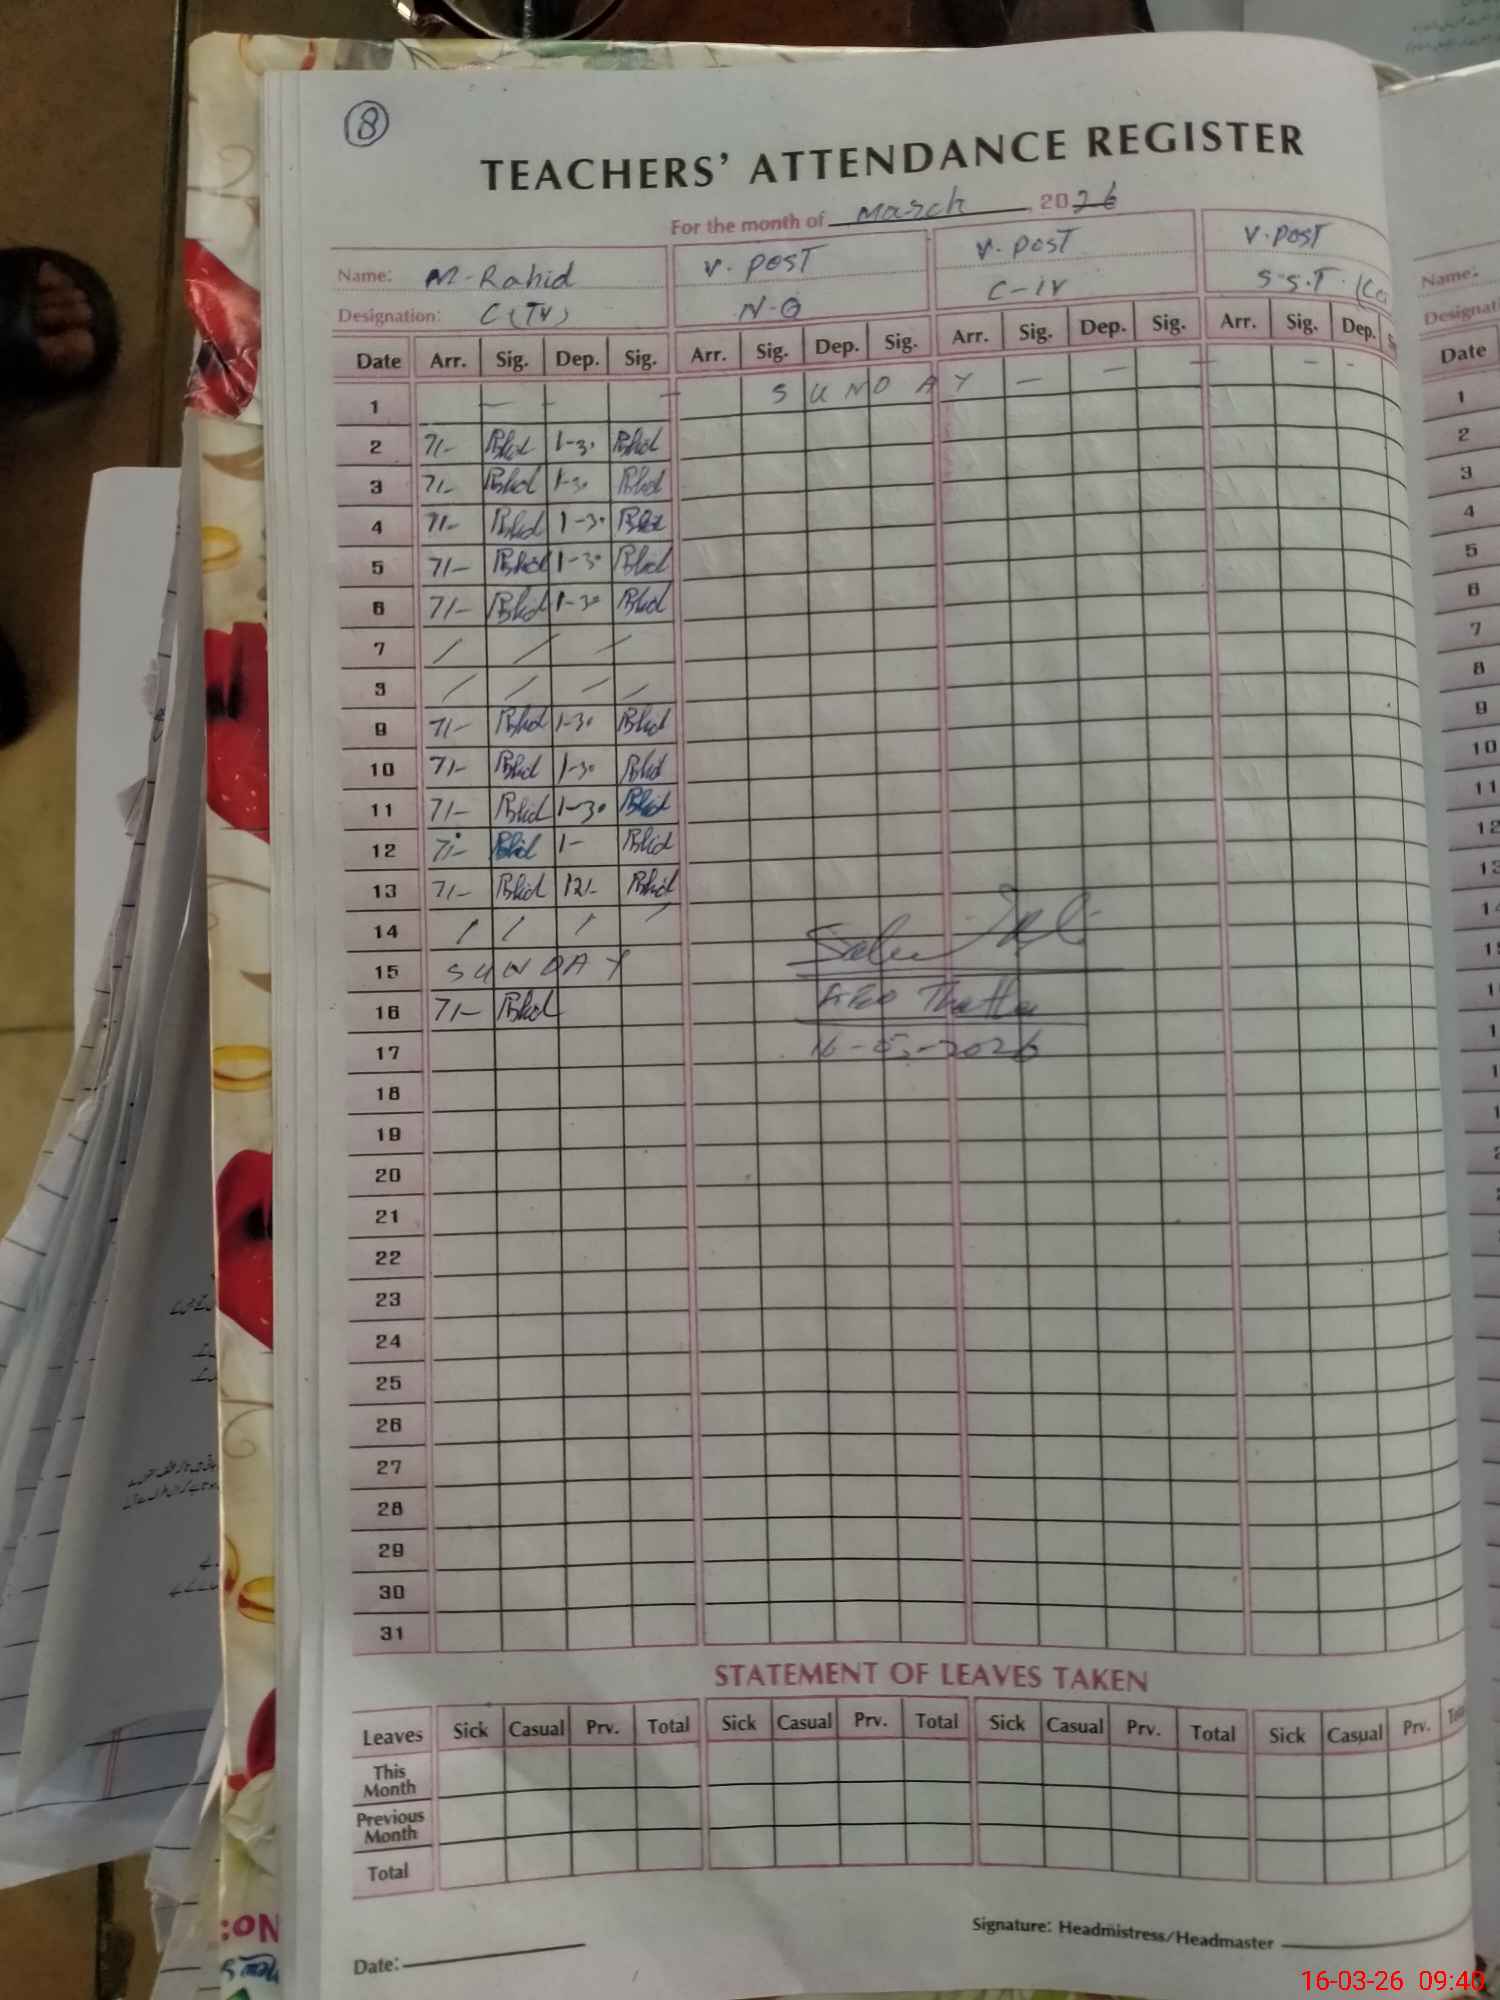 8
TEACHERS' ATTENDANCE REGISTER
For the month of March 2026
Name: M-Rahid V. POST V. POST V. POST
Designation: C(IV) N-Q C-IV S.S.T.
Date Arr. Sig. Dep. Sig. Arr. Sig. Dep. Sig. Arr. Sig. Dep. Sig. Arr. Sig. Dep.
1 — SUNDAY — — — — -
2 7/- Rhid 1-30 Rhid
3 7/- Rhid 1-30 Rhid
4 7/- Rhid 1-30 Rhid
5 7/- Rhid 1-30 Rhid
6 7/- Rhid 1-30 Rhid
7 / / /
8 / / / /
9 7/- Rhid 1-30 Rhid
10 7/- Rhid 1-30 Rhid
11 7/- Rhid 1-30 Rhid
12 7/- Rhid 1- Rhid
13 7/- Rhid 12/- Rhid
14 / / / /
15 SUNDAY
16 7/- Rhid Thatta
17 16-03-2026
18
19
20
21
22
23
24
25
26
27
28
29
30
31
STATEMENT OF LEAVES TAKEN
Leaves Sick Casual Prv. Total Sick Casual Prv. Total Sick Casual Prv. Total Sick Casual Prv.
This Month
Previous Month
Total
Date:
Signature: Headmistress/Headmaster
Name:
Date
1
2
3
4
5
6
7
8
9
10
11
12
16-03-26 09:40